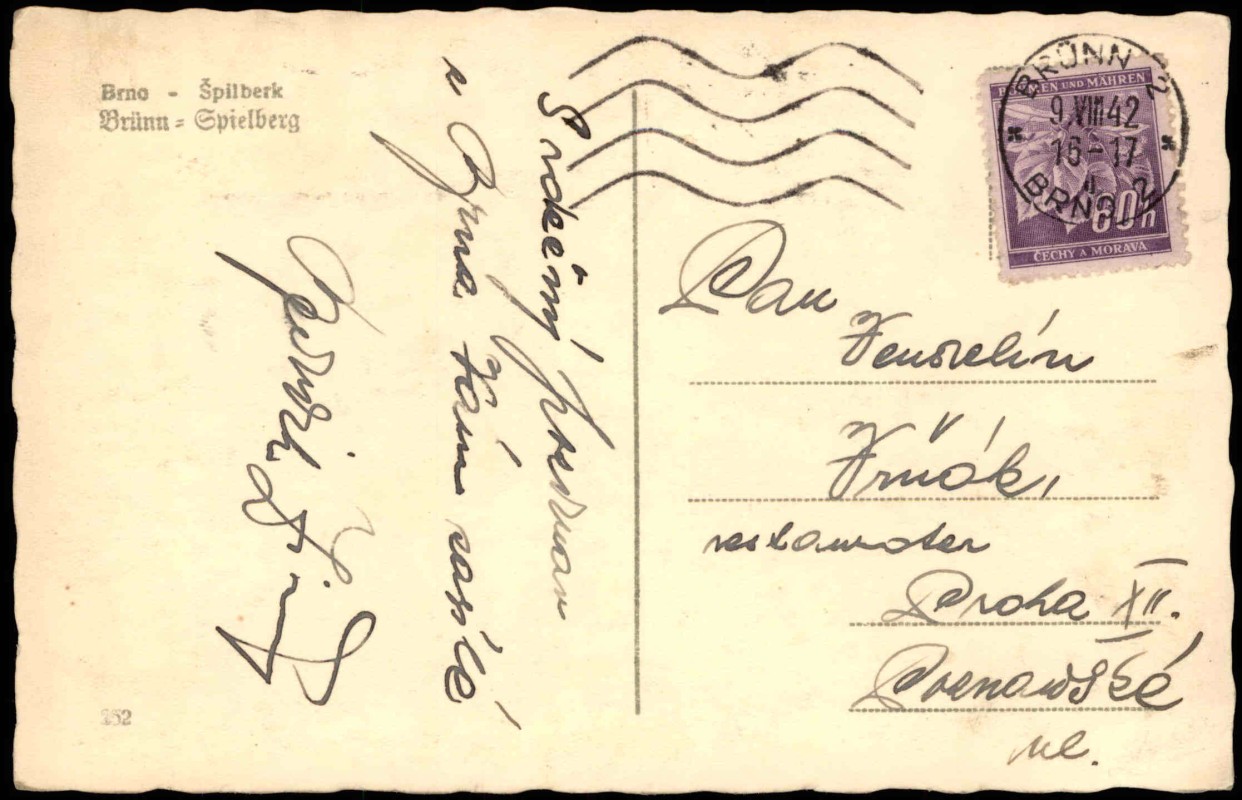 Brno - Špilberk
Brünn - Spielberg
Srdečný pozdrav
z Brna Vám zasílá
252
BRÜNN 2
9.VIII 42
16-17
BRNO 2
BÖHMEN UND MÄHREN
60h
ČECHY A MORAVA
Pan
Venscelín
Vrňák,
restauratér
Praha XII.
Poznaňská
ul.